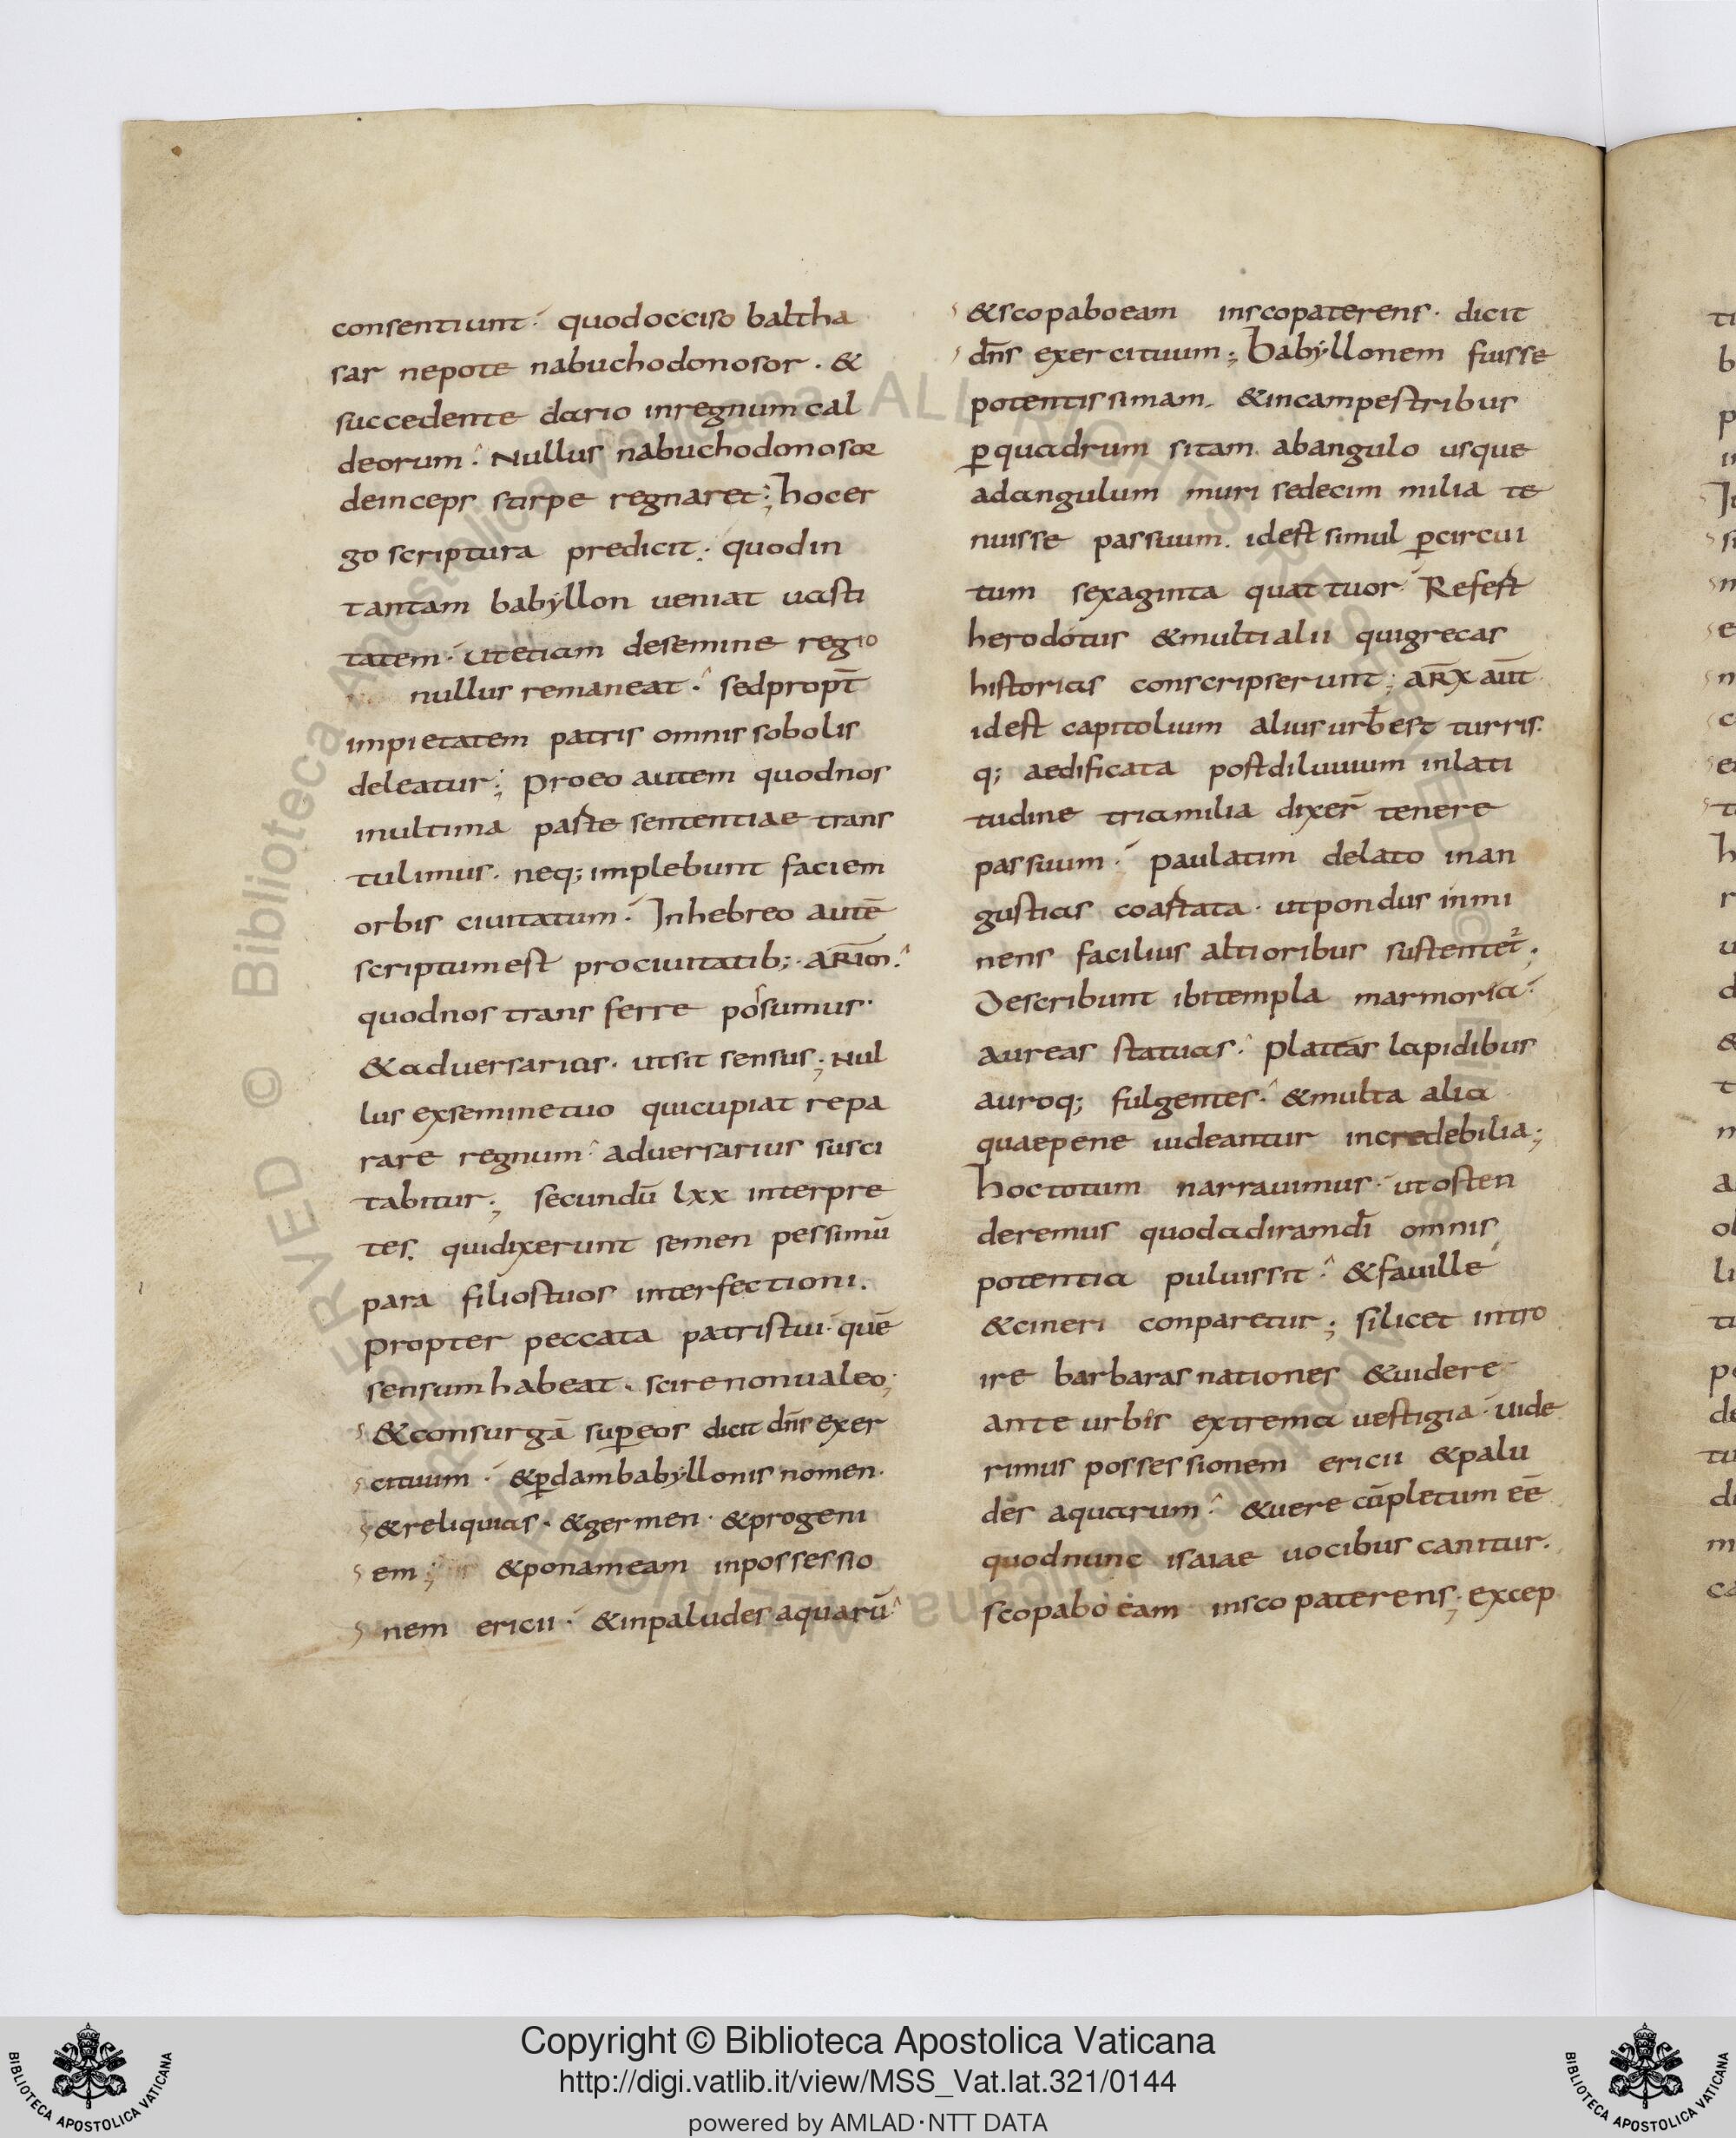 consentiunt· quodocciso baltha
sar nepote nabuchodonosor · &
succedente dario inregnum cal
deorum · Nullus nabuchodonosor
deinceps stirpe regnaret; hocer
go scriptura predicit · quodin
tantam babyllon ueniat uasti
tatem · utetiam desemine regio
nullus remaneat · sedpropt̄
impietatem patris omnis sobolis
deleatur; Proeo autem quodnos
inultima paste sententiae trans
tulimus · neq; implebunt faciem
orbis ciuitatum · Inhebreo autē
scriptumest prociuitatib; · ARIM
quodnos trans ferre possumus ·
&aduersarias · utsit sensus; Nul
lus exseminetuo quicupiat repa
rare regnum · aduersarius susci
tabitur; secundū lxx interpre
tes. quidixerunt semen pessimū
para filiostuos interfectioni.
Propter peccata patristui · quē
sensumhabeat · scirenonualeo;
&consurgā sup̄eos dicit dn̄s exer
cituum · &p̄dambabyllonis nomen ·
&reliquias · &germen · &progeni
em; &ponameam inpossessio
nem ericii · &inpaludes aquarū
&scopaboeam inscopaterens · dicit
dn̄s exercituum; babyllonem fuisse
potentissimam. &incampestribus
p̄quadrum sitam. abangulo usque
adangulum muri sedecim milia te
nuisse passuum. idest simul p̄circui
tum sexaginta quattuor · Refest
herodotus &multialii quigrecas
historias conscripserunt; ARX aūt
idest capitolium aliusurb̄est turris.
q; aedificata postdiluuium inlati
tudine triamilia dixer̄ tenere
passuum · paulatim delato inan
gustias coastata · utpondus inmi
nens facilius altioribus sustentet;
Describunt ibitempla marmoria ·
aureas statuas · plateas lapidibus
auroq; fulgentes · &multa alia
quaepene uideantur incredebilia;
hoctotum narrauimus · utosten
deremus quodadiramdī omnis
potentia puluissit · &fauille
&cineri conparetur; silicet intro
ire barbaras nationes &uidere
ante urbis extrema uestigia · uide
rimus possessionem ericii &palu
des aquarum · &uere cūpletum eē
quodnunc isaiae uocibus canitur.
scopabo eam inscopaterens; excep
Copyright © Biblioteca Apostolica Vaticana
http://digi.vatlib.it/view/MSS_Vat.lat.321/0144
powered by AMLAD·NTT DATA
BIBLIOTECA APOSTOLICA VATICANA
BIBLIOTECA APOSTOLICA VATICANA